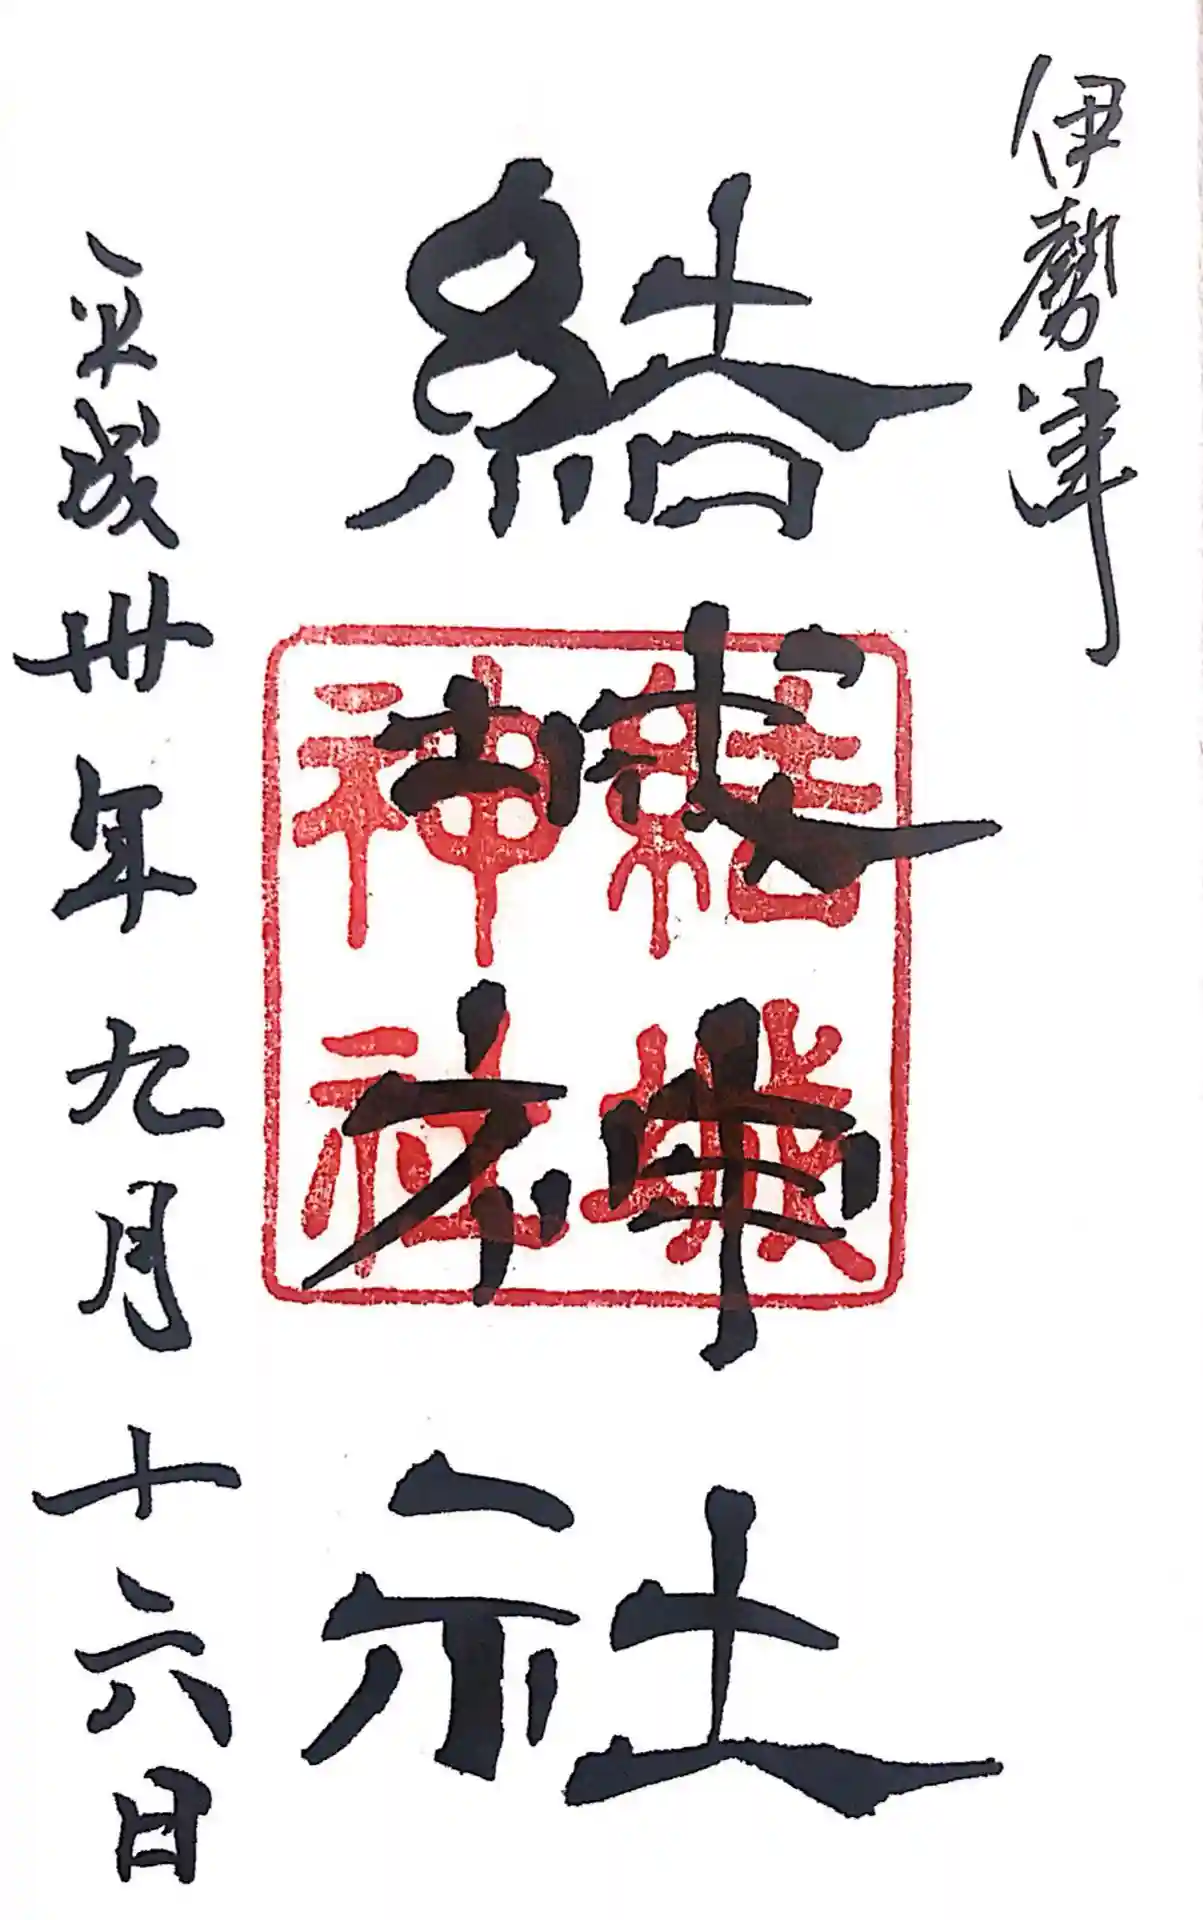 伊勢津
結城神社
結城
神社
平成卅年九月十六日